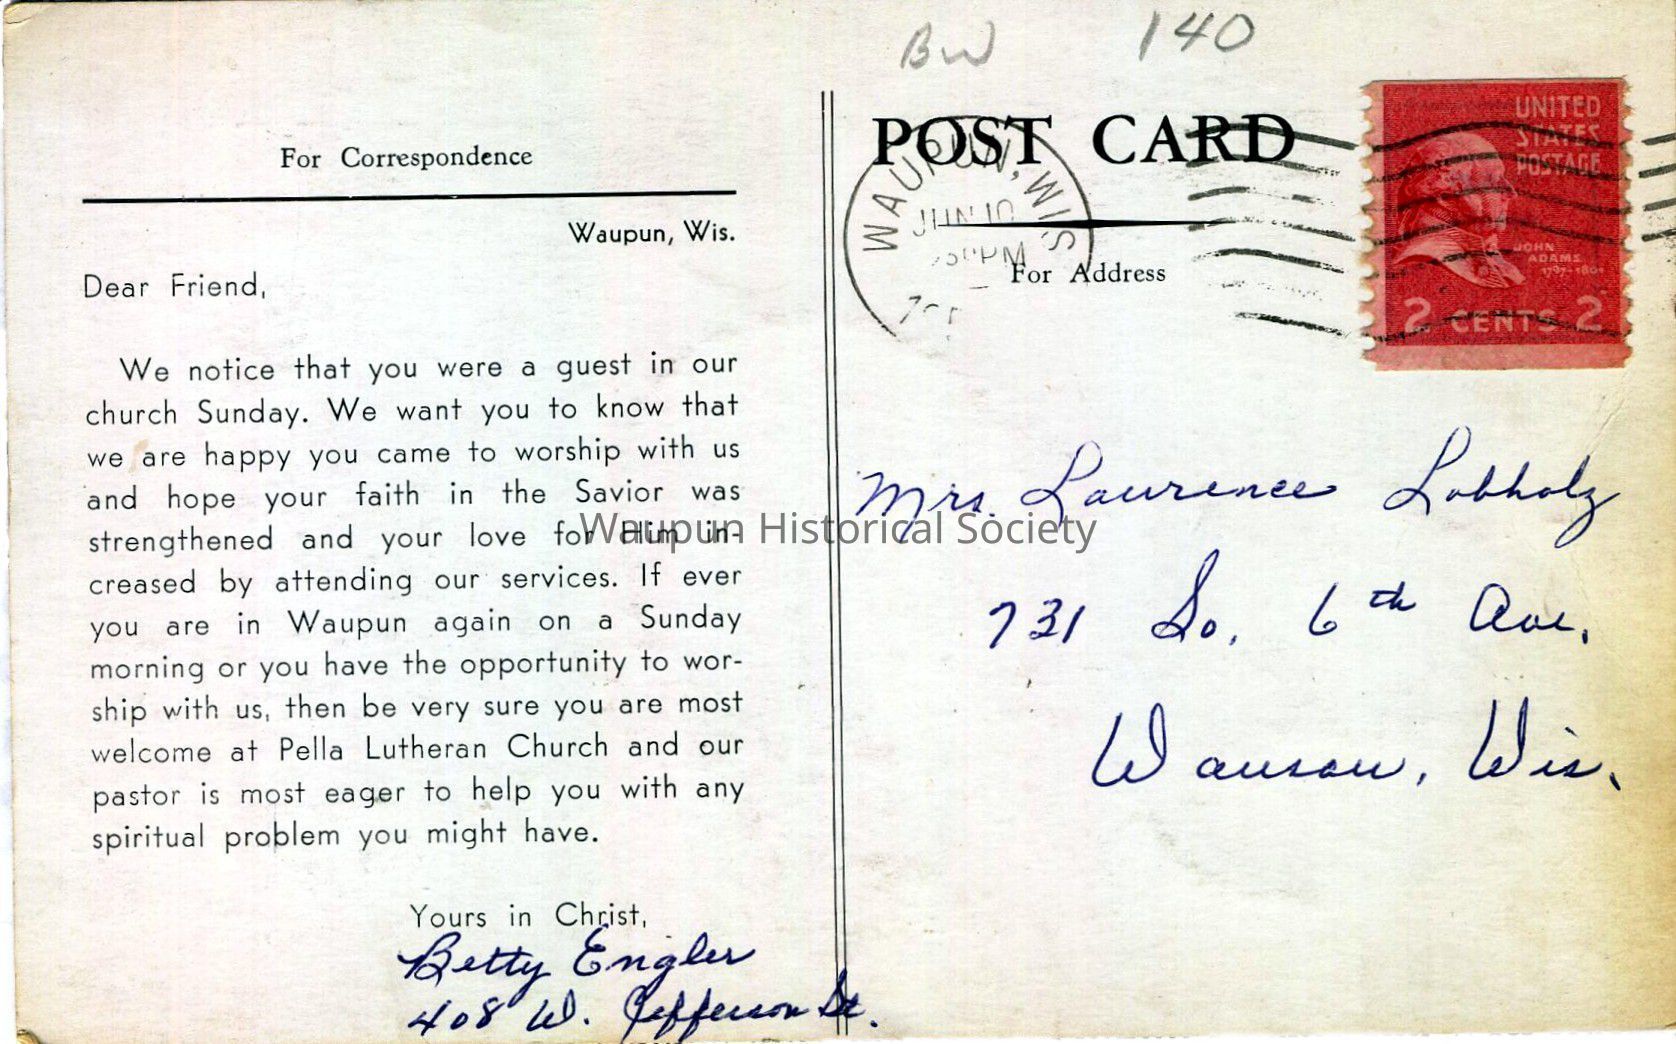 BW 140
For Correspondence
Waupun, Wis.
Dear Friend,
We notice that you were a guest in our
church Sunday. We want you to know that
we are happy you came to worship with us
and hope your faith in the Savior was
strengthened and your love for Him in-
creased by attending our services. If ever
you are in Waupun again on a Sunday
morning or you have the opportunity to wor-
ship with us, then be very sure you are most
welcome at Pella Lutheran Church and our
pastor is most eager to help you with any
spiritual problem you might have.
Yours in Christ,
Betty Engler
408 W. Jefferson St.
POST CARD
WAUPUN, WIS
JUN 10
PM
For Address
UNITED
STATES
POSTAGE
JOHN
ADAMS
1797-1801
2 CENTS 2
Mrs. Lawrence Lobholz
731 So. 6th Ave.
Wausau, Wis.
Waupun Historical Society